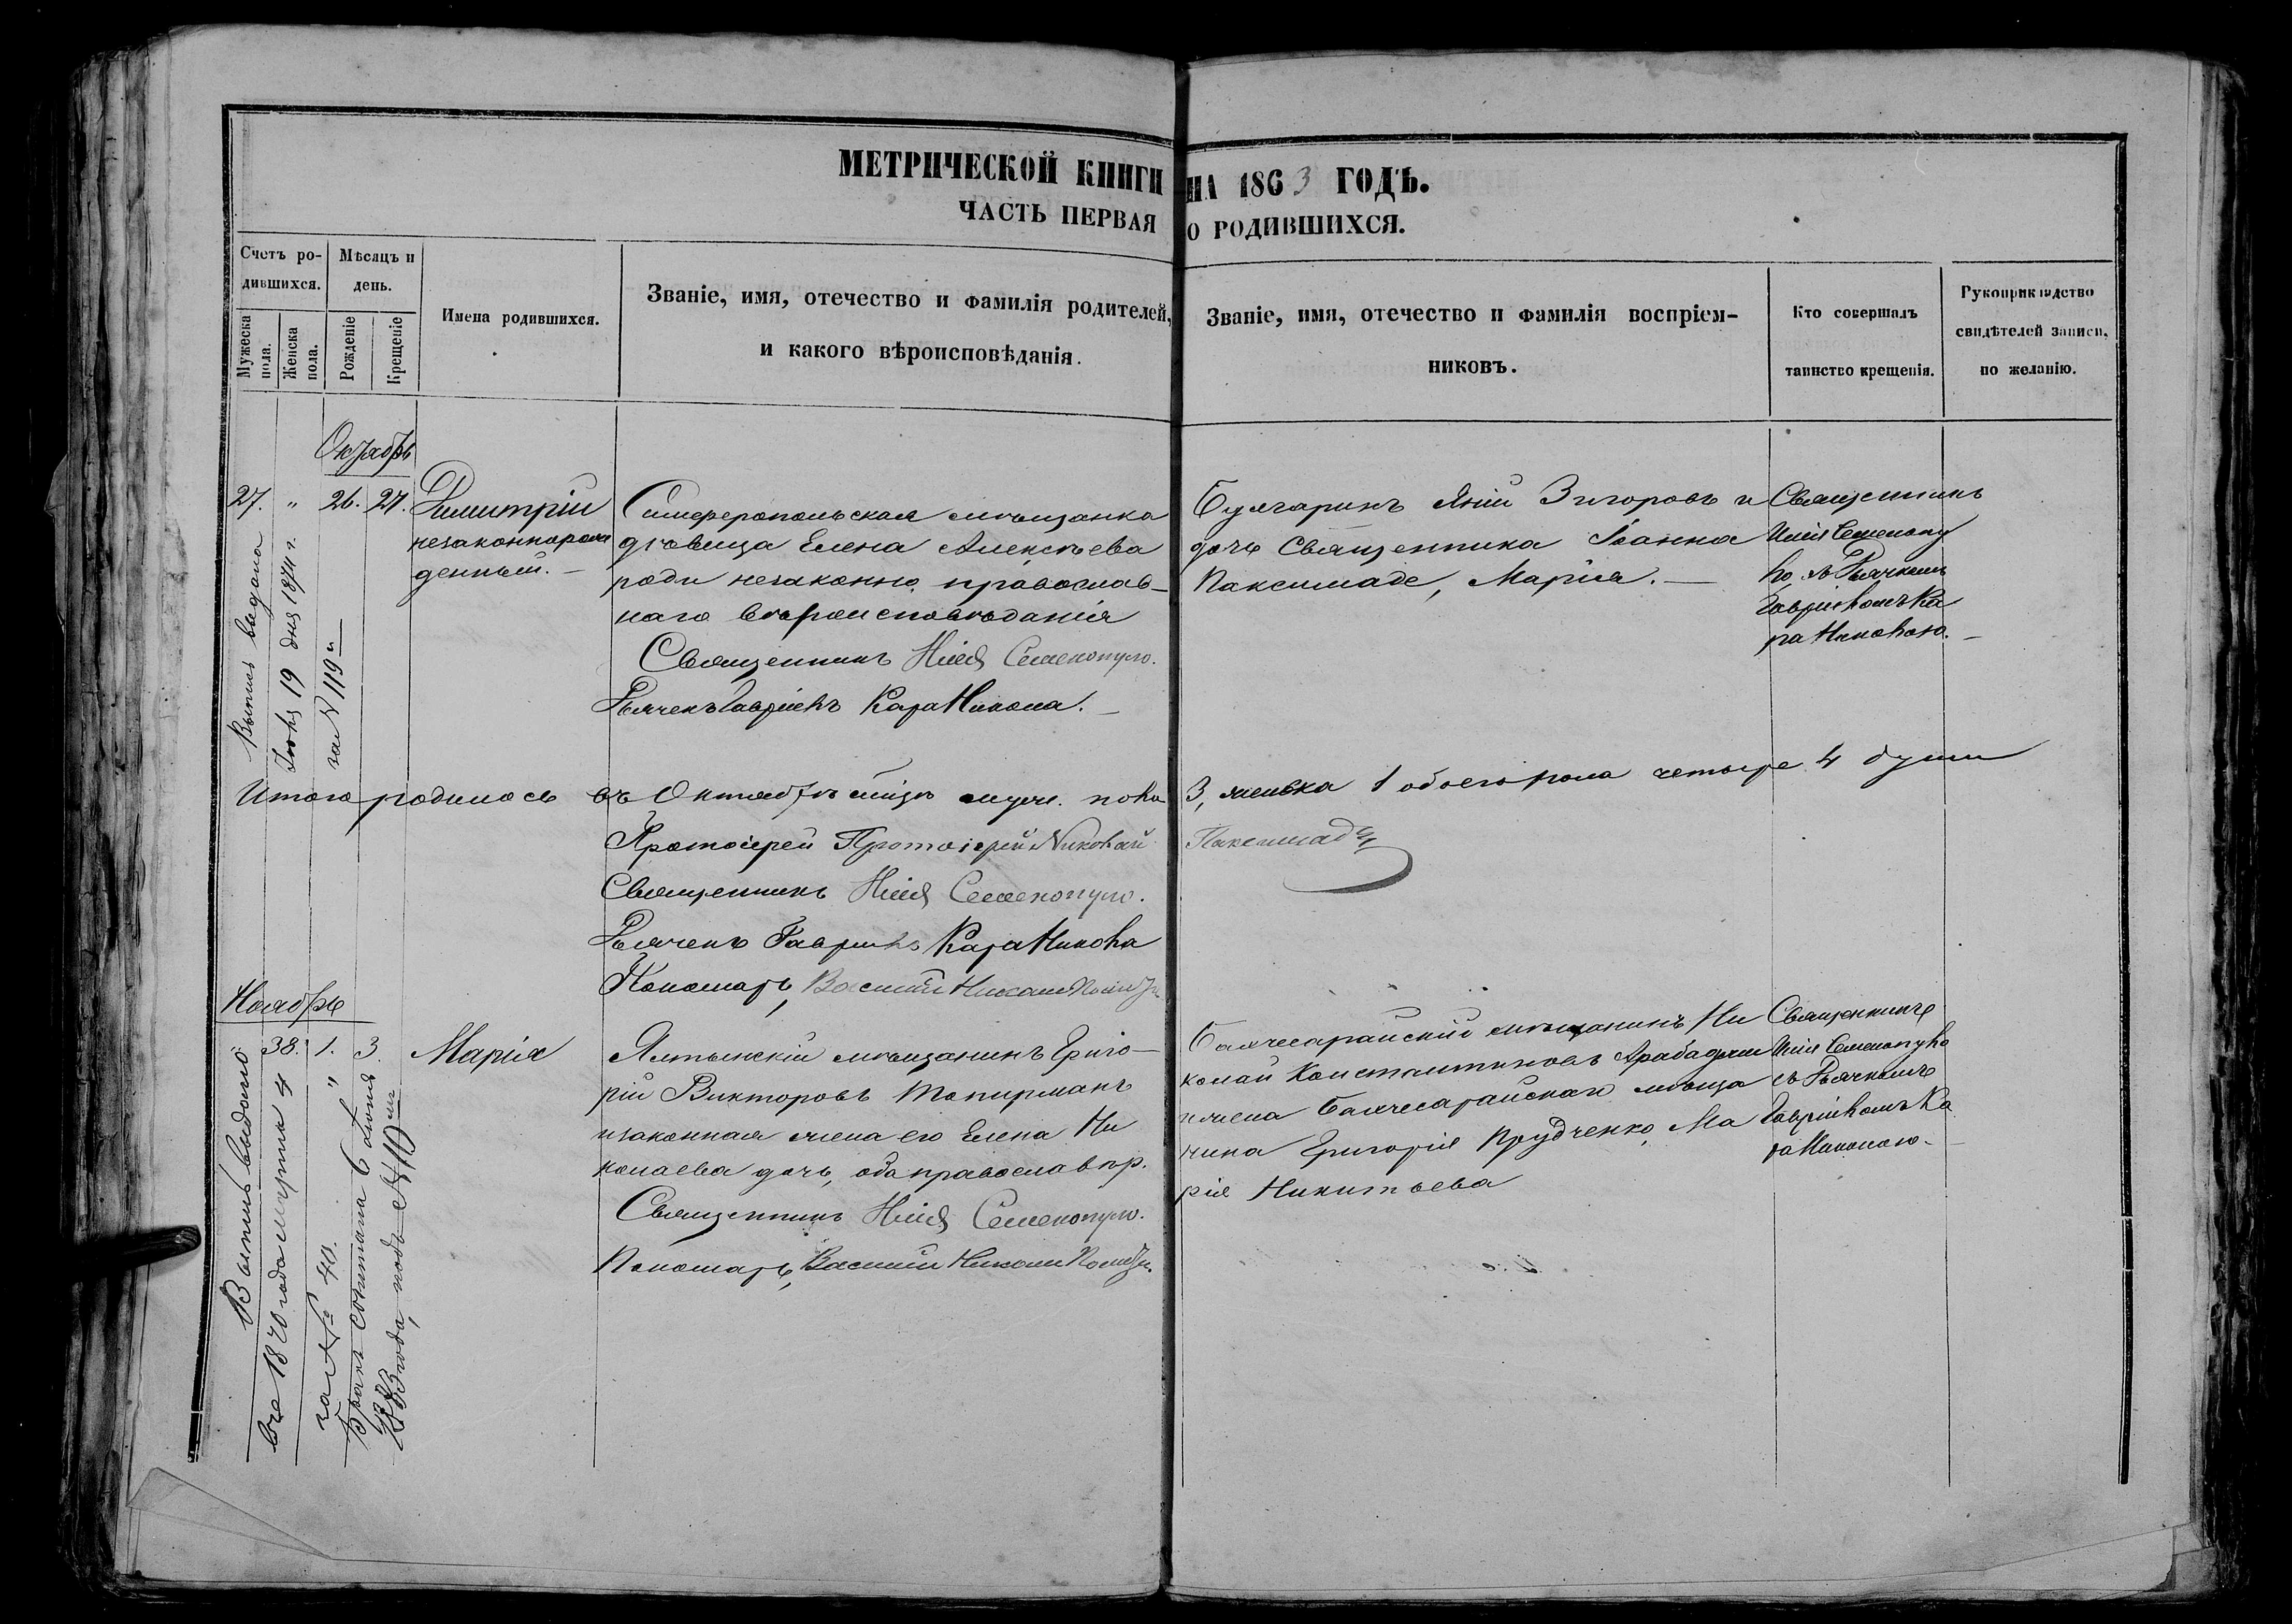 МЕТРИЧЕСКОЙ КНИГИ НА 1863 ГОДЪ.
ЧАСТЬ ПЕРВАЯ О РОДИВШИХСЯ.
Счетъ ро-
дившихся.
Мужеска
пола.
Женска
пола.
Мѣсяцъ и
день.
Рожденіе
Крещеніе
Имена родившихся.
Званіе, имя, отечество и фамилія родителей,
и какого вѣроисповѣданія.
Званіе, имя, отечество и фамилія воспріем-
никовъ.
Кто совершалъ
таинство крещенія.
Рукоприкладство
свидѣтелей записи,
по желанію.
Октябрь
27. " 26. 27.
Димитрій
незаконнорож
денный. –
Симферопольская мѣщанка
дѣвица Елена Алексѣева
роди незаконно, православ-
наго вѣроисповѣданія
Священникъ Илія Семенопуло.
Дьячекъ Гавріилъ КараНикола. –
Булгаринъ Яній Зигоровъ и
дочь Священника Іоанна
Паксимаде, Марія. –
Священникъ
Илія Семенопу
ло, съ Дьячкомъ
Гавріиломъ Ка
раНиколою. –
Выпись выдана
19 дня 1874 г.
за № 119 й
Итого родилось въ Октябрѣ мцѣ муж. пола 3, женска 1 обоего пола четыре 4 души
Протоіерей Протоіерей Николай Паксимадъ
Священникъ Илія Семенопуло.
Дьячекъ Гавріилъ КараНикола
Пономарь, Василій
Ноябрь
" 38. 1. 3.
Марія
Ялтынскій мѣщанинъ Григо-
рій Викторовъ Топирманъ
и законная жена его Елена Ни
колаева дочь, оба православнр.
Священникъ Илія Семенопуло.
Пономарь, Василій
Бахчесарайскій мѣщанинъ Ни
колай Константиновъ Арабаджи
и жена Бахчесарайскаго мѣща
нина Григорія Прудченко, Ма
рія Никитьева
Священникъ
Илія Семенопуло
съ Дьячкомъ
Гавріиломъ Ка
раНиколою –
Выпись выдана
1870 года марта 4
за № 40.
Бракъ сочитана 6 Іюня
года, подъ № 10 мъ